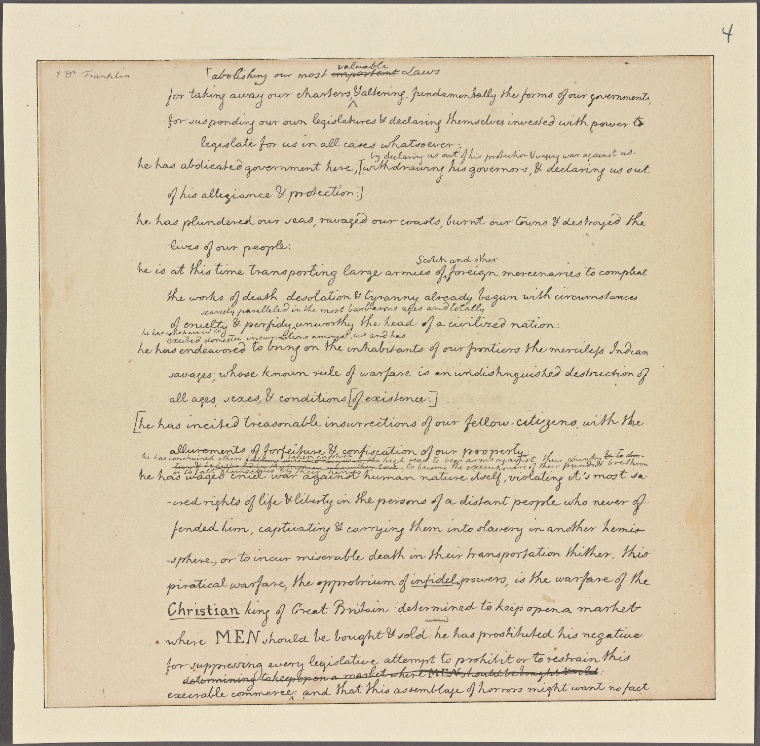 4
† Dr Franklin
valuable
abolishing our most important Laws
for taking away our charters, & altering fundamentally the forms of our governments,
for suspending our own legislatures & declaring themselves invested with power to
legislate for us in all cases whatsoever:
by declaring us out of his protection & waging war against us.
he has abdicated government here, [withdrawing his governors, & declaring us out
of his allegiance & protection:]
he has plundered our seas, ravaged our coasts, burnt our towns & destroyed the
lives of our people:
Scotch and other
he is at this time transporting large armies of foreign mercenaries to compleat
the works of death desolation & tyranny already begun with circumstances
scarcely paralleled in the most barbarous ages and totally
of cruelty & perfidy unworthy the head of a civilized nation:
he has
excited domestic insurrections amongst us and has
he has endeavored to bring on the inhabitants of our frontiers the merciless Indian
savages, whose known rule of warfare is an undistinguished destruction of
all ages, sexes, & conditions [of existence:]
[he has incited treasonable insurrections of our fellow-citizens, with the
allurements of forfeiture & confiscation of our property
he has constrained others taken captives on the high seas to bear arms against their country &
to become the executioners of their friends & brethren
or to fall themselves by their hands
he has waged cruel war against human nature itself, violating it's most sa-
-cred rights of life & liberty in the persons of a distant people who never of-
fended him, captivating & carrying them into slavery in another hemis-
-sphere, or to incur miserable death in their transportation thither. this
piratical warfare, the opprobrium of infidel powers, is the warfare of the
Christian king of Great Britain determined to keep open a market
where MEN should be bought & sold he has prostituted his negative
for suppressing every legislative attempt to prohibit or to restrain this
determining to keep open a market where MEN should be bought & sold:
execrable commerce, and that this assemblage of horrors might want no fact